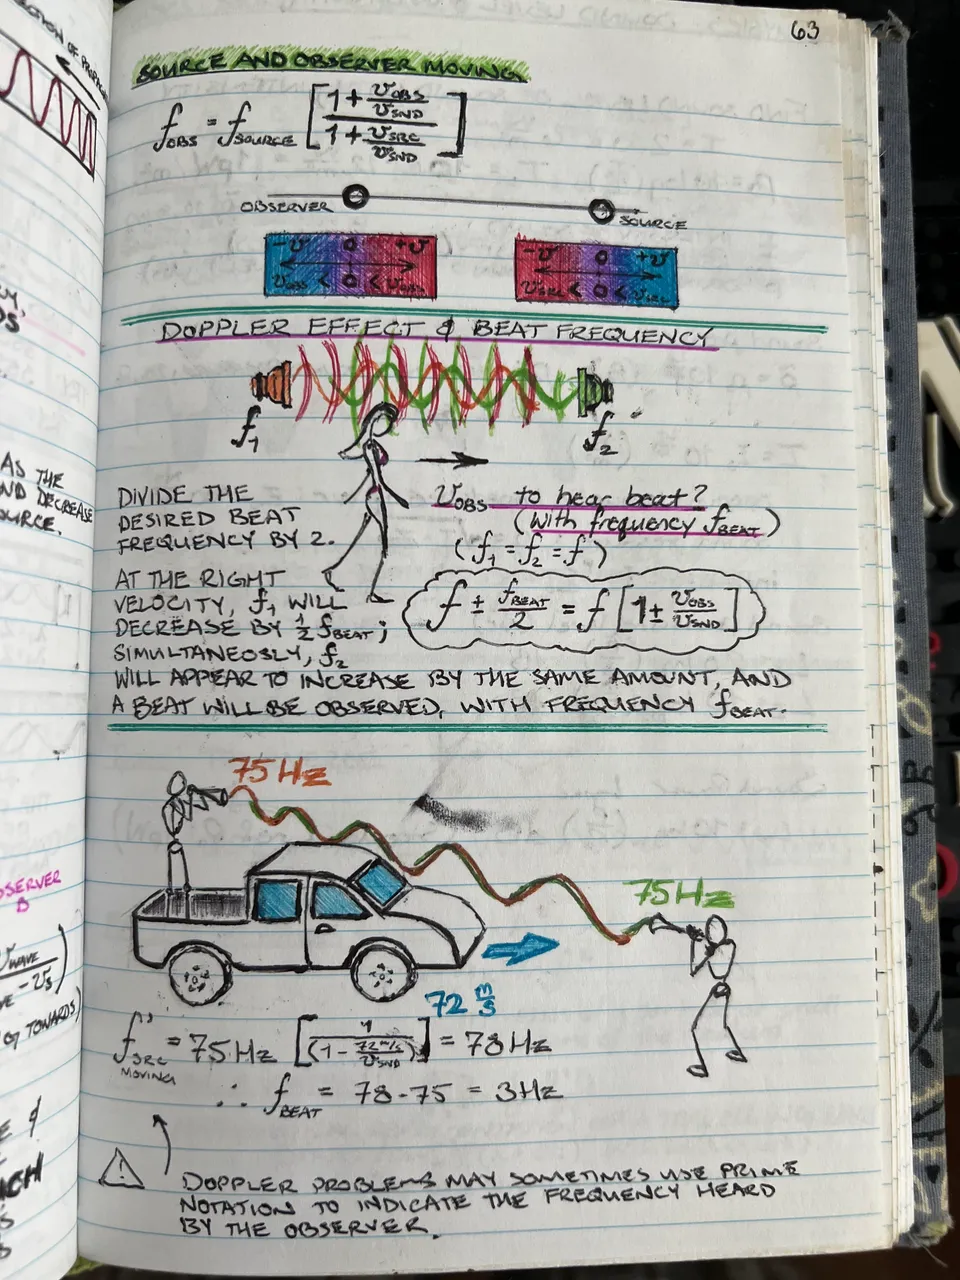 63
SOURCE AND OBSERVER MOVING
f_OBS = f_SOURCE [(1 + v_OBS/v_SND) / (1 + v_SRC/v_SND)]
OBSERVER SOURCE
-v 0 +v -v 0 +v
v_OBS < 0 < v_OBS v_SRC < 0 < v_SRC
DOPPLER EFFECT & BEAT FREQUENCY
f_1 f_2
DIVIDE THE
DESIRED BEAT
FREQUENCY BY 2.
v_OBS to hear beat?
(with frequency f_BEAT)
(f_1 = f_2 = f)
f ± f_BEAT/2 = f [1 ± v_OBS/v_SND]
AT THE RIGHT
VELOCITY, f_1 WILL
DECREASE BY 1/2 f_BEAT;
SIMULTANEOSLY, f_2
WILL APPEAR TO INCREASE BY THE SAME AMOUNT, AND
A BEAT WILL BE OBSERVED, WITH FREQUENCY f_BEAT.
75 Hz
75 Hz
72 m/s
f'_SRC MOVING = 75 Hz [1 / (1 - 72 m/s / v_SND)] = 78 Hz
∴ f_BEAT = 78 - 75 = 3 Hz
!
DOPPLER PROBLEMS MAY SOMETIMES USE PRIME
NOTATION TO INDICATE THE FREQUENCY HEARD
BY THE OBSERVER.
AS THE
ND DECREASE
OURCE.
B